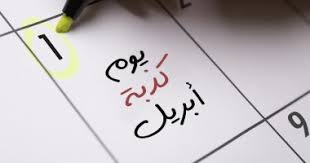 1
يوم
كذبة
أبريل
9